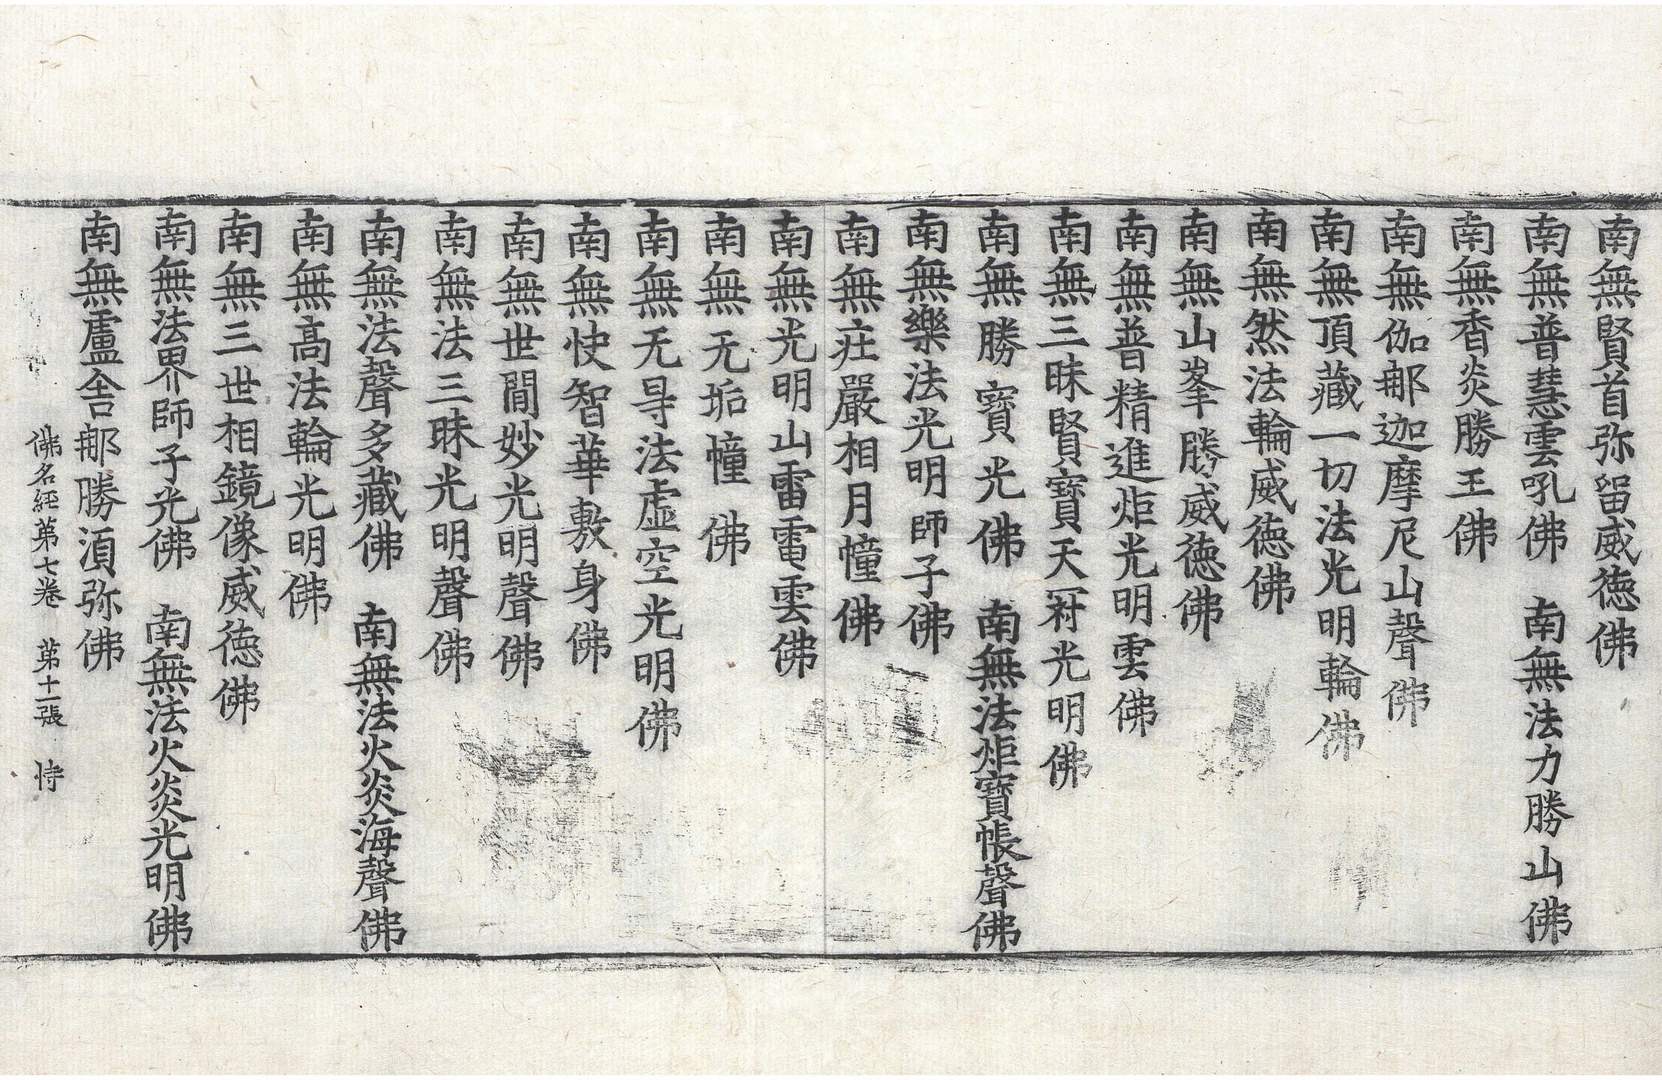 南無賢首弥留威徳佛
南無普慧雲吼佛　南無法力勝山佛
南無香炎勝王佛
南無伽耶迦摩尼山聲佛
南無頂藏一切法光明輪佛
南無然法輪威徳佛
南無山峯勝威徳佛
南無普精進炬光明雲佛
南無三昧賢寶天冠光明佛
南無勝寶光佛　南無法炬寶帳聲佛
南無樂法光明師子佛
南無莊嚴相月幢佛
南無光明山雷電雲佛
南無无垢幢佛
南無无㝵法虛空光明佛
南無快智華敷身佛
南無世間妙光明聲佛
南無法三昧光明聲佛
南無法聲多藏佛　南無法火炎海聲佛
南無高法輪光明佛
南無三世相鏡像威徳佛
南無法界師子光佛　南無法火炎光明佛
南無盧舍那勝湏弥佛
佛名經第七卷　第十二張　恃